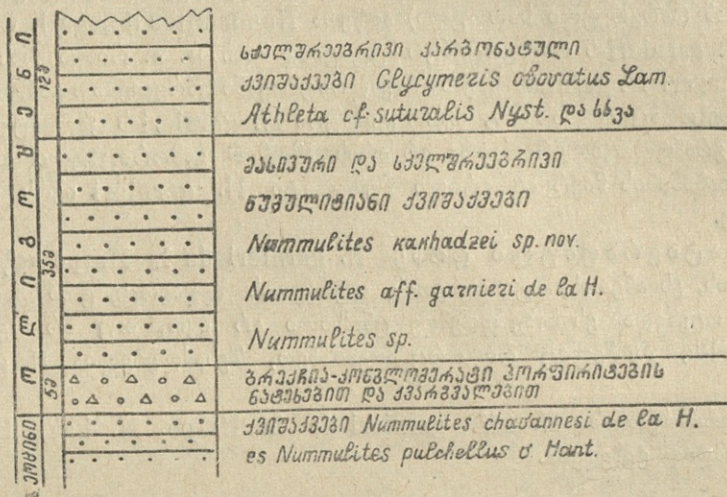 ოლიგოცენი
12მ
სქელშრეებრივი კარბონატული
ქვიშაქვები Glycymeris obovatus Lam.
Athleta cf. suturalis Nyst. და სხვა
35მ
მასიური და სქელშრეებრივი
ნუმულიტიანი ქვიშაქვები
Nummulites kakhadzei sp. nov.
Nummulites aff. garnieri de la H.
Nummulites sp.
5მ
ბრექჩია-კონგლომერატი პორფირიტების
ნატეხებით და ქვარგვალებით
ქვიშაქვები Nummulites chavannesi de la H.
es Nummulites pulchellus d Hant.